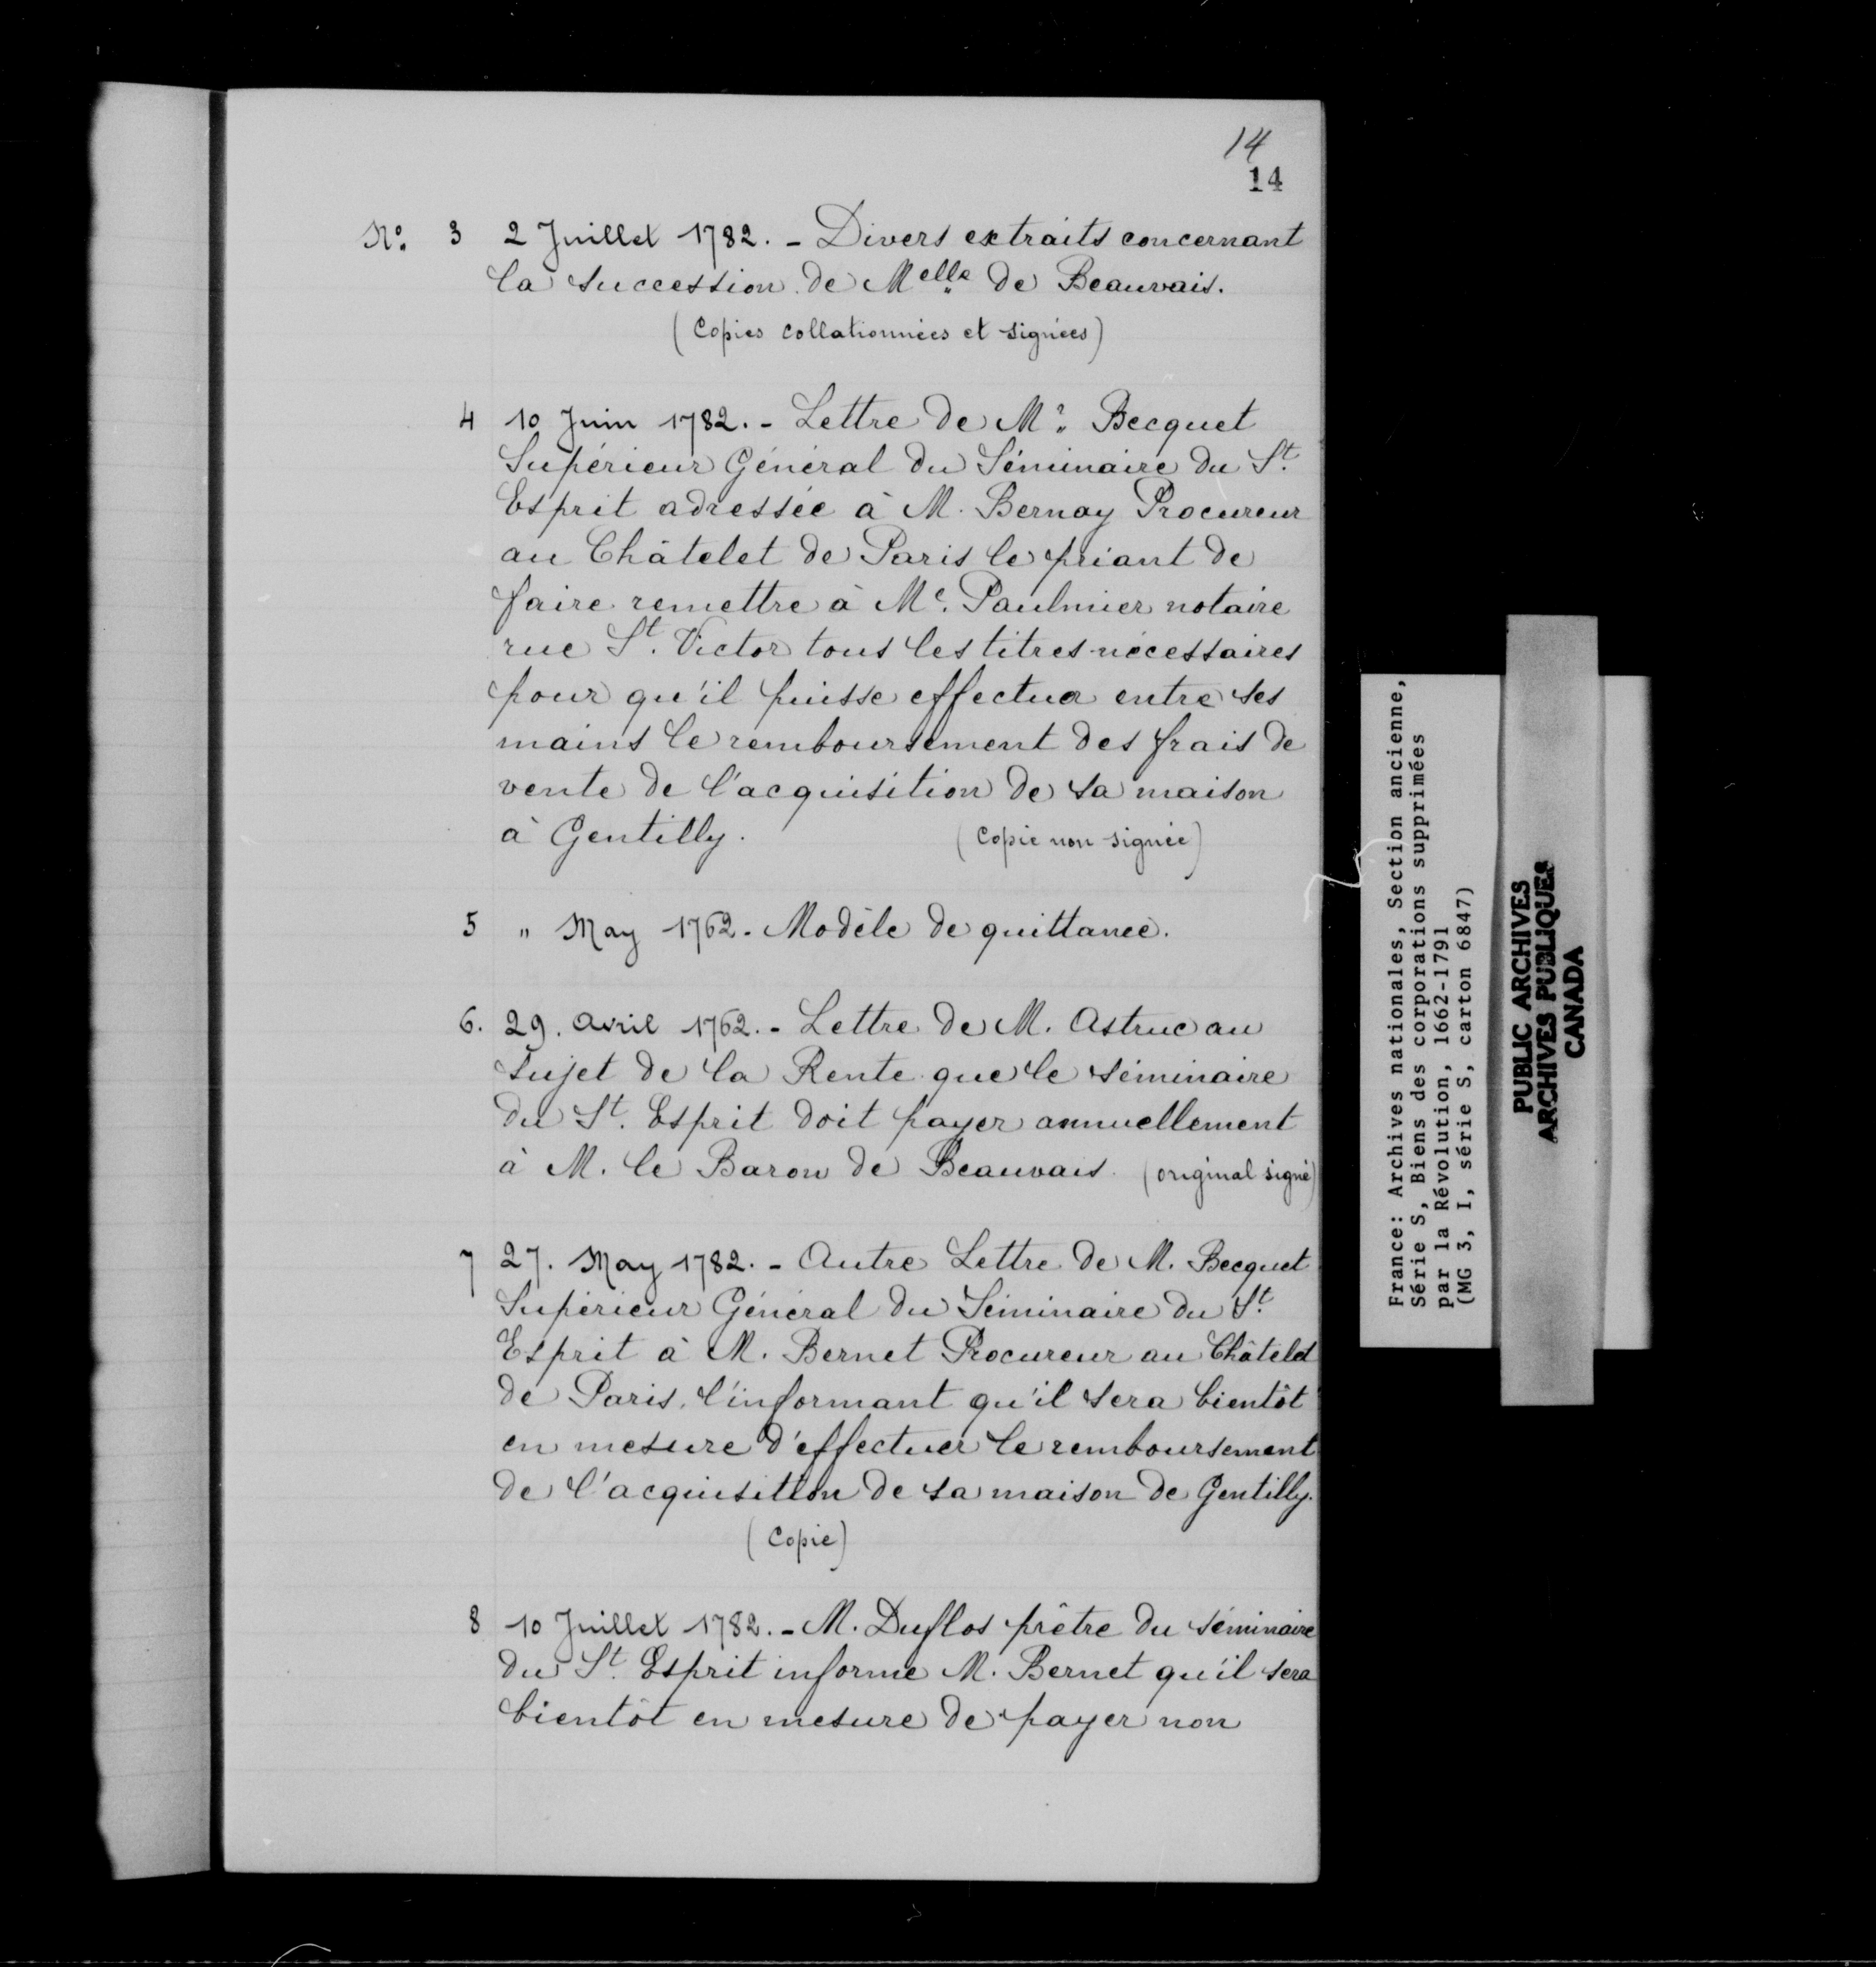 14
14
No. 3 2 Juillet 1782. - Divers extraits concernant
la succession de Melle de Beauvais.
(Copies collationnées et signées)
4 10 Juin 1782. - Lettre de Mr. Becquet
Supérieur Général du Séminaire du St.
Esprit adressée à M. Bernay Procureur
au Châtelet de Paris le priant de
faire remettre à Me. Paulmier notaire
rue St. Victor tous les titres nécessaires
pour qu'il puisse effectuer entre ses
mains le remboursement des frais de
vente de l'acquisition de sa maison
à Gentilly. (Copie non signée)
5 " May 1762. Modèle de quittance.
6. 29. Avril 1762. - Lettre de M. Astruc au
sujet de la Rente que le séminaire
du St. Esprit doit payer annuellement
à M. le Baron de Beauvais. (original signé)
7 27. May 1782. - Autre Lettre de M. Becquet
Supérieur Général du Séminaire du St.
Esprit à M. Bernet Procureur au Châtelet
de Paris, l'informant qu'il sera bientôt
en mesure d'effectuer le remboursement
de l'acquisition de sa maison de Gentilly.
(Copie)
8 10 Juillet 1782. - M. Duflos prêtre du séminaire
du St. Esprit informe M. Bernet qu'il sera
bientôt en mesure de payer non
France: Archives nationales, Section ancienne,
Série S, Biens des corporations supprimées
par la Révolution, 1662-1791
(MG 3, I, série S, carton 6847)
PUBLIC ARCHIVES
ARCHIVES PUBLIQUES
CANADA